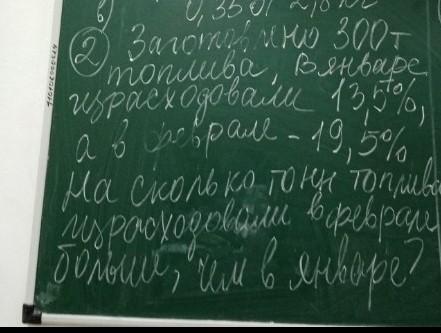 в) 0,35 от
② Заготовлено 300т
топлива, В январе
израсходовали 13,5%,
а в феврале - 19,5%
На сколько тонн топлива
израсходовали в феврале
больше, чем в январе?